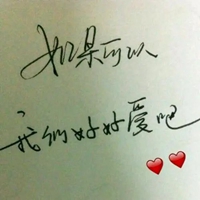 如果可以
我们好好爱吧